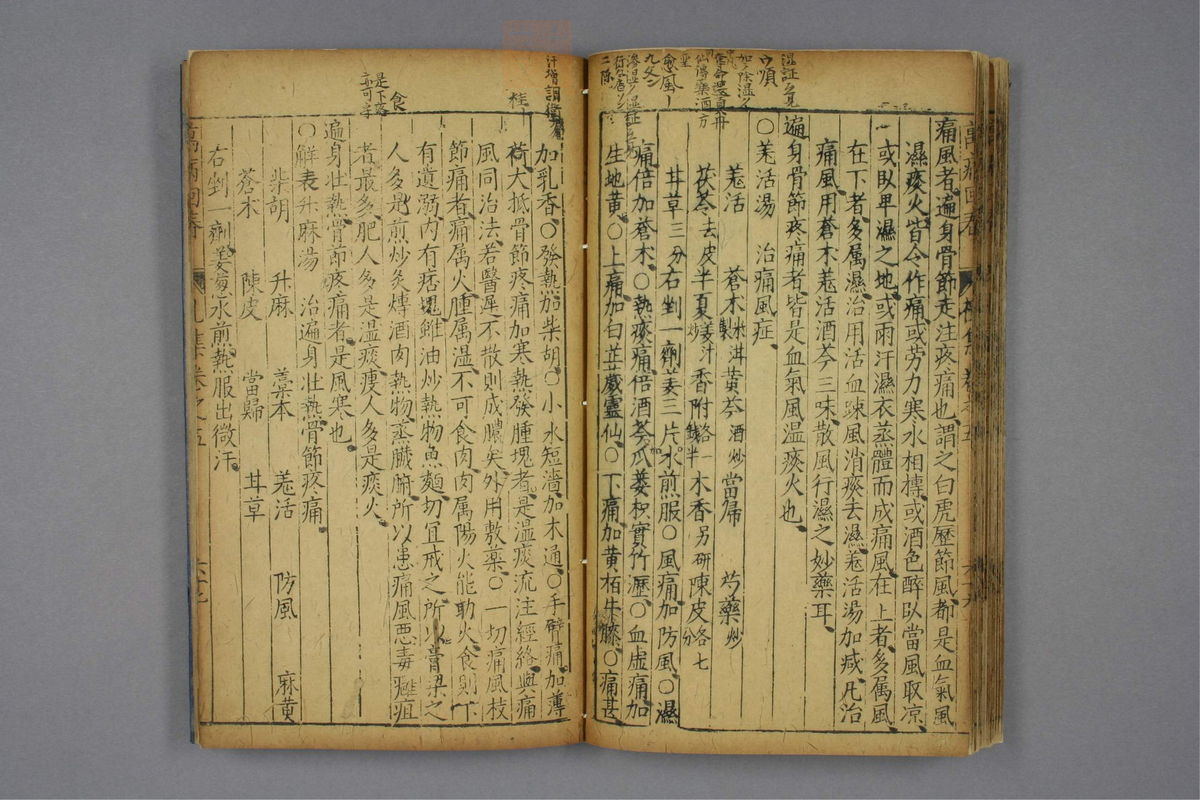 痛風者遍身骨節走注疼痛也謂之白虎歷節風都是血氣風
濕痰火皆令作痛或劳力寒水相摶或酒色醉臥當風取凉
或臥卑濕之地或雨汗濕衣蒸體而成痛風在上者多属風
在下者多属濕治用活血踈風消痰去濕羗活湯加减凡治
痛風用蒼木羗活酒芩三味散風行濕之妙藥耳
遍身骨節疼痛者皆是血氣風温痰火也
○羗活湯　治痛風症
羗活　蒼木米泔製　黄芩酒炒　當歸　芍藥炒
茯苓去皮　半夏姜汁炒　香附各一錢半　木香另研　陳皮各七分
甘草三分　右剉一劑姜三片水煎服○風痛加防風○濕
痛倍加蒼木○熱痰痛倍酒芩瓜蔞枳實竹瀝○血虚痛加
生地黄○上痛加白芷威靈仙○下痛加黄栢牛膝○痛甚
加乳香○發熱加柴胡○小水短濇加木通○手臂痛加薄
桂
大抵骨節疼痛加寒熱發腫塊者是温痰流注經絡與痛
風同治法若醫遲不散則成膿矣外用敷藥○一切痛風枝
節痛者痛属火腫属温不可食肉肉属陽火能助火食則下
有遺溺内有痞塊雖油炒熱物魚麵切宜戒之所以膏梁之
人多是煎炒炙煿酒肉熱物蒸臟腑所以患痛風悪毒癰疽
者最多肥人多是温痰瘦人多是痰火
遍身壮熱骨節疼痛者是風寒也
○解表升麻湯　治遍身壮熱骨節疼痛
柴胡　升麻　藁本　羗活　防風　麻黄
蒼木　陳皮　當歸　甘草
右剉一劑姜葱水煎熱服出微汗
萬病回春